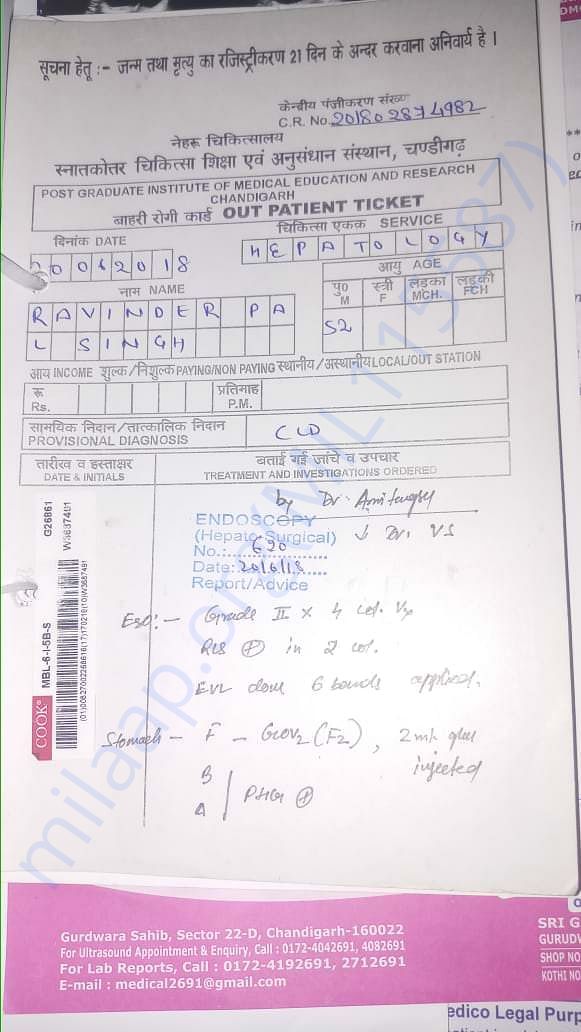 सूचना हेतू :- जन्म तथा मृत्यु का रजिस्ट्रीकरण 21 दिन के अन्दर करवाना अनिवार्य है ।
केन्द्रीय पंजीकरण संख्या
C.R. No. 201802874982
नेहरू चिकित्सालय
स्नातकोतर चिकित्सा शिक्षा एवं अनुसंधान संस्थान, चण्डीगढ़
POST GRADUATE INSTITUTE OF MEDICAL EDUCATION AND RESEARCH
CHANDIGARH
बाहरी रोगी कार्ड OUT PATIENT TICKET
दिनांक DATE
चिकित्सा एकक SERVICE
062018
HEPATOLOGY
आयु AGE
नाम NAME
पु० M स्त्री F लड़का MCH. लड़की FCH
RAVINDER PA
L SINGH
52
आय INCOME शुल्क/निशुल्क PAYING/NON PAYING स्थानीय/अस्थानीय LOCAL/OUT STATION
रू Rs.
प्रतिमाह P.M.
सामयिक निदान/तात्कालिक निदान
PROVISIONAL DIAGNOSIS
CLD
तारीख व हस्ताक्षर
DATE & INITIALS
बताई गई जांचे व उपचार
TREATMENT AND INVESTIGATIONS ORDERED
by Dr.
ENDOSCOPY
(Hepato Surgical) ↓ Dr. VS
No.: 620
Date: 20/6/18
Report/Advice
G26861
W3687491
COOK
MBL-6-I-5B-S
Eso:- Grade II x 4 col. Vx
RCS ⊕ in 2 col.
EVL done 6 bands applied.
Stomach - F - GOV2 (F2), 2ml glue
injected
B
A
PHG ⊕
milaap.org
Gurdwara Sahib, Sector 22-D, Chandigarh-160022
For Ultrasound Appointment & Enquiry, Call : 0172-4042691, 4082691
For Lab Reports, Call : 0172-4192691, 2712691
E-mail : medical2691@gmail.com
SRI G
GURUDW
SHOP NO
KOTHI NO
edico Legal Purp